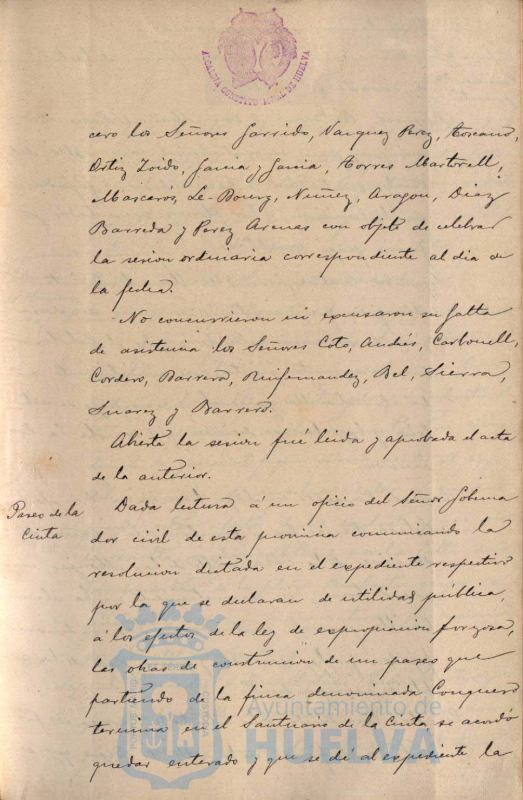 ALCALDIA CONSTITUCIONAL DE HUELVA
cero los Señores Garrido, Vazquez Perez, Toscano,
Ortiz Zoido, Garcia y Garcia, Torres Martorell,
Mascarós, Le-Bourg, Nuñez, Aragon, Diaz
Barreda y Perez Arenas con objeto de celebrar
la sesion ordinaria correspondiente al dia de
la fecha.
No concurrieron ni excusaron su falta
de asistencia los Señores Coto, Andrés, Carbonell,
Cordero, Barrero, Ruifernandez, Bel, Sierra,
Suarez y Barrero.
Abierta la sesion fué leida y aprobada el acta
de la anterior.
Paseo de la
Cinta
Dada lectura á un oficio del Señor Goberna
dor civil de esta provincia comunicando la
resolucion dictada en el expediente respectivo
por la que se declaran de utilidad pública,
á los efectos de la ley de expropiacion forzosa,
las obras de construccion de un paseo que
partiendo de la finca denominada Conquero
termina en el Santuario de la Cinta se acordó
quedar enterado y que se dé al expediente la
Ayuntamiento de
HUELVA